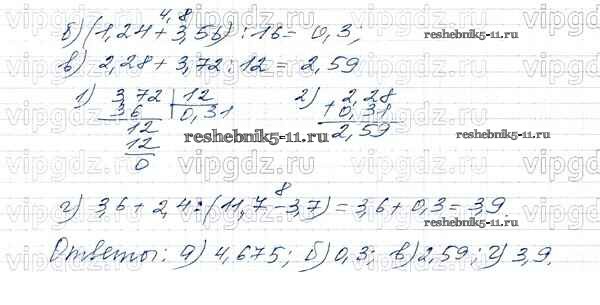 4,8
б) (1,24 + 3,56) : 16 = 0,3;
в) 2,28 + 3,72 : 12 = 2,59
1) 3,72 | 12
36 0,31
12
12
0
2) 2,28
+ 0,31
2,59
8
г) 3,6 + 2,4 : (11,7 - 3,7) = 3,6 + 0,3 = 3,9.
Ответы: а) 4,675; б) 0,3; в) 2,59; г) 3,9.
reshebnik5-11.ru
reshebnik5-11.ru
reshebnik5-11.ru
vipgdz.ru